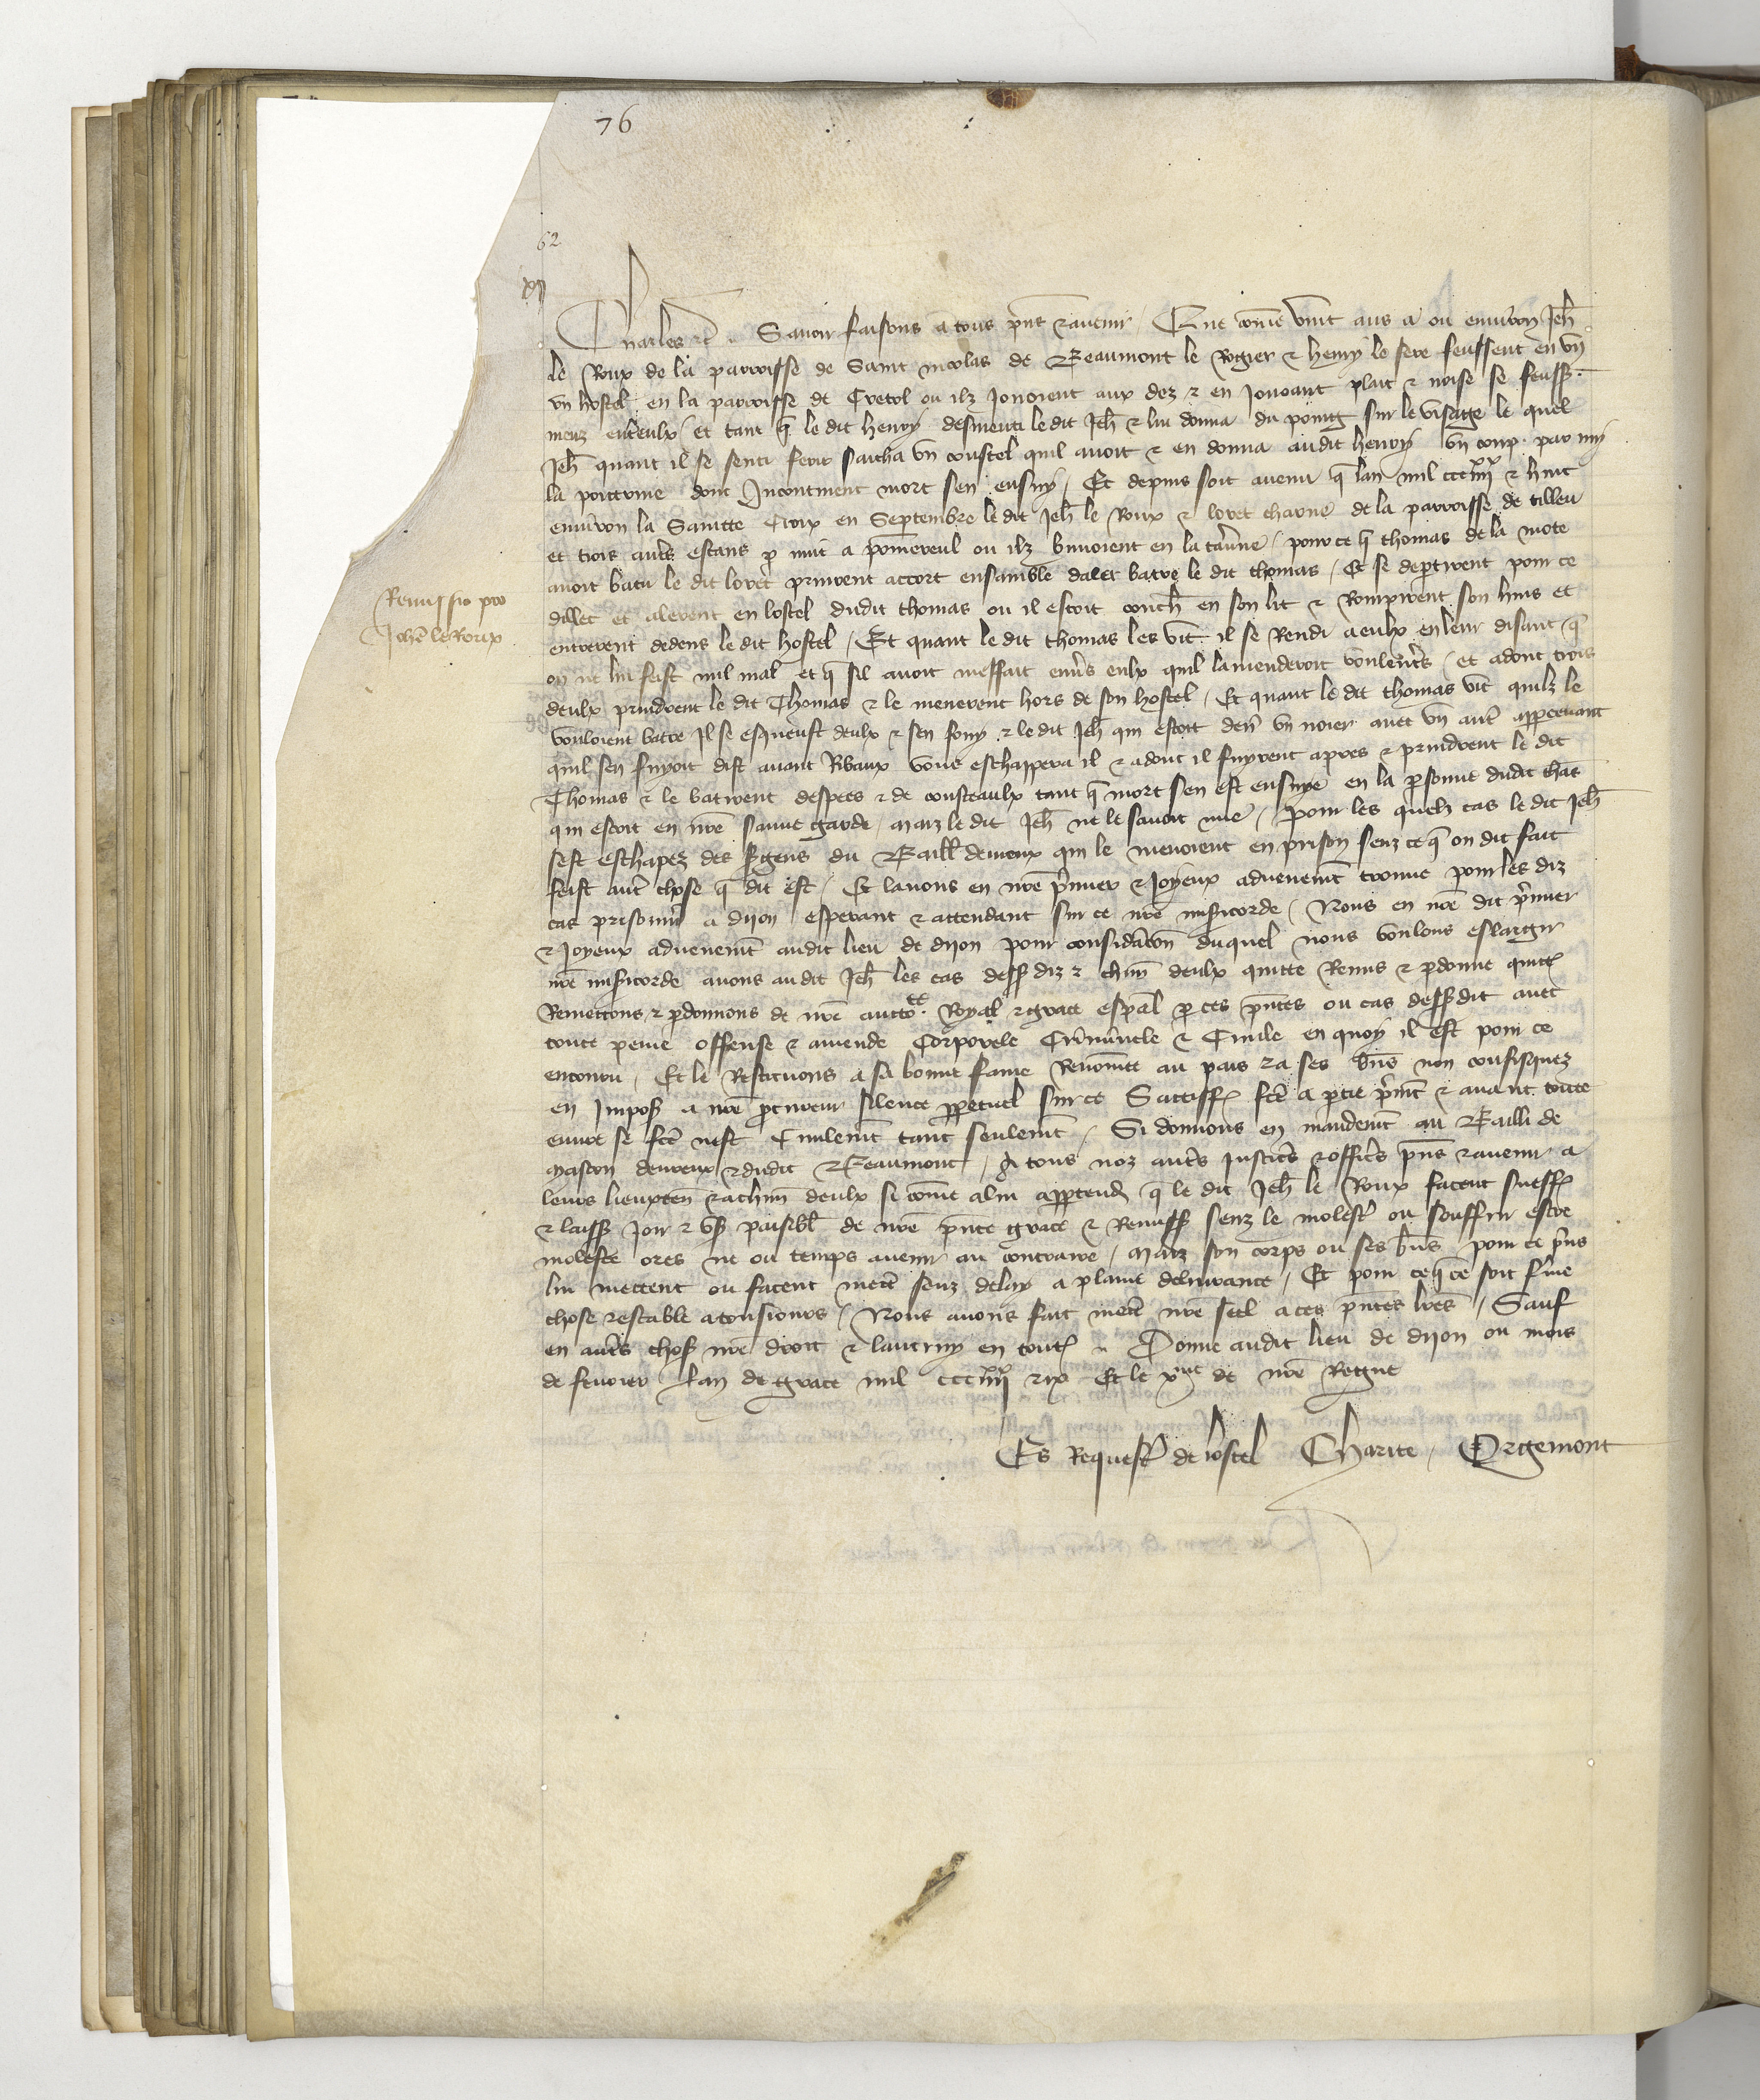 76
62
Charles etc Savoir faisons a tous pns & avenir Que come vint ans a ou environ Jeh
le Roux de la parroisse de Saint nicolas de Beaumont le Rogier & henry le fevre feussent en un
un hostel en la parroisse de Cretol ou ilz jouoient aux dez & en jouoant plait & noise se feuss
meuz entreulx et tant q le dit henry desmenti le dit Jeh & lui donna du poing sur le visaige le quel
Jeh quant il se senti ferir saicha un coustel quil avoit & en donna audit henry un coup par my
la poictrine dont Incontinent mort sen ensuy Et depuis soit avenu q lan mil ccc iiii xx & huit
environ la Saintte Croix en Septembre le dit Jeh le Roux & loret de la parroisse de tilleu
et trois autrs estans p nuit a pomereul ou ilz buvoient en la tavne pour ce q thomas de la mote
avoit batu le dit loret prinrent accort ensamble daler batre le dit thomas Et se deptirent pour ce
dillec et alerent en lostel dudit thomas ou il estoit couch en son lit & Rompirent son huis et
entrerent dedens le dit hostel Et quant le dit thomas les vit il se Rendi a eulx en leur disant q
on ne lui feist nul mal et q sil avoit meffait envrs eulx quil lamenderoit voulentrs et adont trois
deulx prindrent le dit Thomas & le menerent hors de son hostel Et quant le dit thomas vit quilz le
vouloient batre Il se esqueust deulx & sen fouy & le dit Jeh qui estoit derr un noier avec un autr appcevant
quil sen fuyoit dist avant Ribaux vous eschappera il & adont il fuyrent apres & prindrent le dit
Thomas & le batirent despees & de cousteaulx tant q mort sen est ensuye en la psonne dudit thas
qui estoit en nre sauve garde maiz le dit Jeh ne le savoit mie Pour les quelz cas le dit Jeh
sest eschapez des sgens du Baill devreux qui le menoient en prison senz ce q on dit fait
feist autr chose q dit est Et lavons en nre prmier & joyeux advenemt trouve pour les diz
cas prisonnr a dijon esperant & attendant sur ce nre misicorde Nous en nre dit prmier
& joyeux advenemt audit lieu de dijon pour considacon duquel nous voulons eslargir
nre misicorde avons audit Jeh les cas dessus diz & chun deulx quitte Remis & pdonne quitt
Remettons & pdonnons de nre aucto te Royal & grace espal p ces pntes ou cas dessusdit avec
toute peine offense & amende Corporele Criminele & Civile en quoy il est pour ce
encouru Et le Restituons a sa bonne fame Renomee au pais & a ses bns non confisquez
en impos a nre pcureur silence ppetuel sur ce Satiff fce a ptie prmt & avant toute
euvre se fce nest Civilemt tant seulemt Si donnons en mandemt au Bailli de
mascon devreux & dudit Beaumont A tous noz autrs justicrs & officrs pns & avenir a
leurs lieuxten & a chun deulx si come a lui apptend q le dit Jeh le Roux facent sueff
& laiss joir & us paisibl de nre pnte grace & Remiss senz le molestr ou souffrir estre
moleste ores ne ou temps avenir au contraire maiz son corps ou ses bns pour ce prns
lui mettent ou facent mectr senz delay a plaine delivrance Et pour ce q ce soit frme
chose & estable a tousjours Nous avons fait mectr nre seel a ces pntes lres Sauf
en autrs chos nre droit & lautruy en tout Donne audit lieu de dijon ou mois
de fevrier Lan de grace mil ccc iiii xx & ix Et le x me de nre Regne
Es Requestr de lostel Charite Orgemont
Remissio pro
Johe le Roux